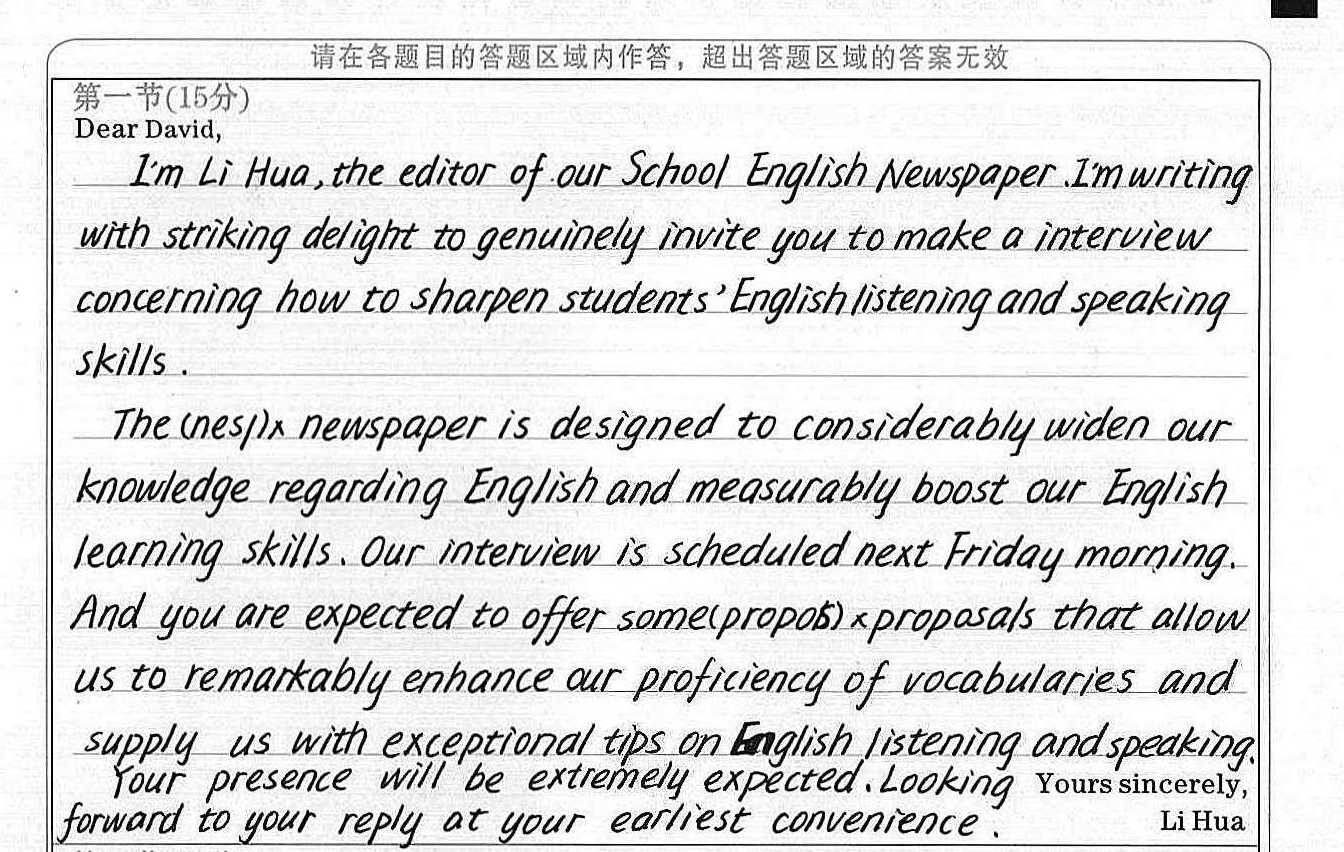 请在各题目的答题区域内作答，超出答题区域的答案无效
第一节(15分)
Dear David,
I'm Li Hua, the editor of our School English Newspaper. I'm writing
with striking delight to genuinely invite you to make a interview
concerning how to sharpen students' English listening and speaking
skills.
The (nesp)x newspaper is designed to considerably widen our
knowledge regarding English and measurably boost our English
learning skills. Our interview is scheduled next Friday morning.
And you are expected to offer some x proposals that allow
us to remarkably enhance our proficiency of vocabularies and
supply us with exceptional tips on English listening and speaking.
Your presence will be extremely expected. Looking
Yours sincerely,
forward to your reply at your earliest convenience.
Li Hua